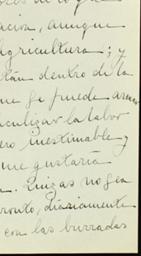 ación, aunque
agricultura; y
dentro de la
me se puede
culizar la labor
ero inestimable y
me gustaría
Quizás no sea
pronto, diariamente
con las burradas